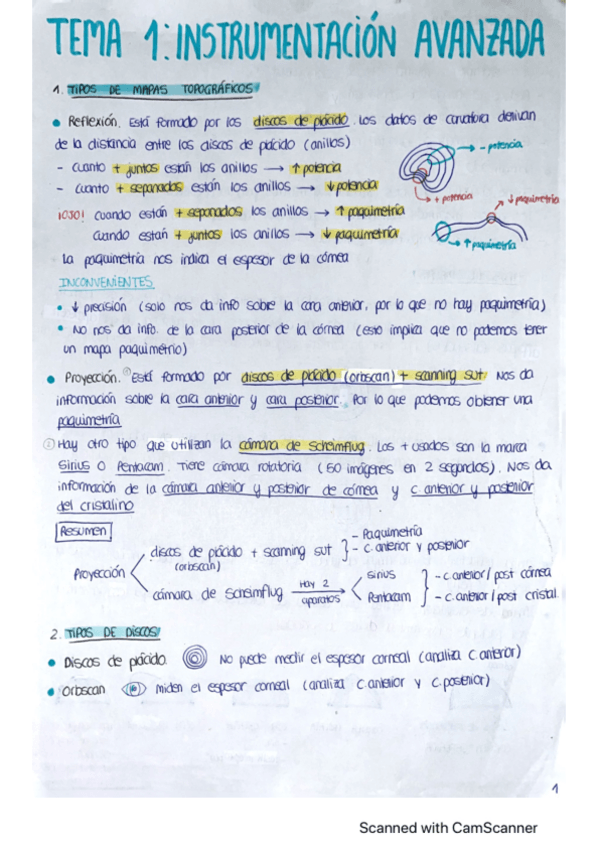 TEMA 1: INSTRUMENTACIÓN AVANZADA
1. TIPOS DE MAPAS TOPOGRÁFICOS
• Reflexión. Está formado por los discos de plácido. Los datos de curvatura derivan
de la distancia entre los discos de plácido (anillos)
- cuanto + juntos están los anillos → ↑ potencia
- cuanto + separados están los anillos → ↓ potencia
¡OJO! cuando están + separados los anillos → ↑ paquimetría
cuando están + juntos los anillos → ↓ paquimetría
→ - potencia
→ + potencia
↓ paquimetría
→ ↑ paquimetría
La paquimetría nos indica el espesor de la córnea
INCONVENIENTES
• ↓ precisión (solo nos da info sobre la cara anterior, por lo que no hay paquimetría)
• No nos da info. de la cara posterior de la córnea (esto implica que no podemos tener
un mapa paquimétrio)
• Proyección. ① Está formado por discos de plácido (orbscan) + scanning slit. Nos da
información sobre la cara anterior y cara posterior. Por lo que podemos obtener una
paquimetría
② Hay otro tipo que utilizan la cámara de Scheimflug. Los + usados son la marca
Sirius o Pentacam. Tiene cámara rotatoria (50 imágenes en 2 segundos). Nos da
información de la cámara anterior y posterior de córnea y c anterior y posterior
del cristalino
Resumen
Proyección
discos de plácido + scanning slit
(orbscan)
- Paquimetría
- c. anterior y posterior
cámara de Scheimflug
Hay 2
aparatos
Sirius
Pentacam
- c. anterior / post córnea
- c. anterior / post cristal.
2. TIPOS DE DISCOS
• Discos de plácido. No puede medir el espesor corneal (analiza c. anterior)
• Orbscan miden el espesor corneal (analiza c. anterior y c. posterior)
1
Scanned with CamScanner